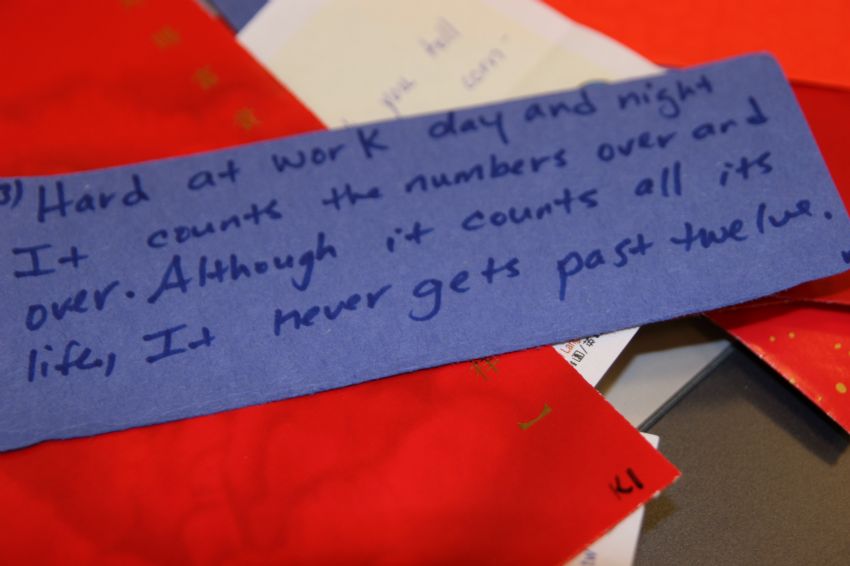 you tell
corn
3) Hard at work day and night
It counts the numbers over and
over. Although it counts all its
life, It never gets past twelve.
K1